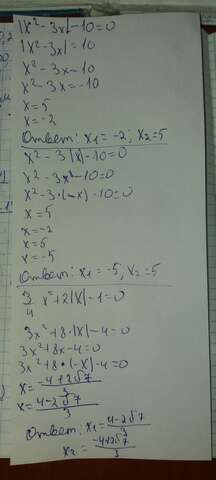 |x²-3x|-10=0
|x²-3x|=10
x²-3x=10
x²-3x=-10
x=5
x=-2
Ответ: x₁=-2, x₂=5
x²-3|x|-10=0
x²-3x-10=0
x²-3·(-x)-10=0
x=5
x=-2
x=5
x=-5
Ответ: x₁=-5, x₂=5
3/4 x²+2|x|-1=0
3x²+8·|x|-4=0
3x²+8x-4=0
3x²+8·(-x)-4=0
x=(-4+2√7)/3
x=(4-2√7)/3
Ответ: x₁=(4-2√7)/3
x₂=(-4+2√7)/3